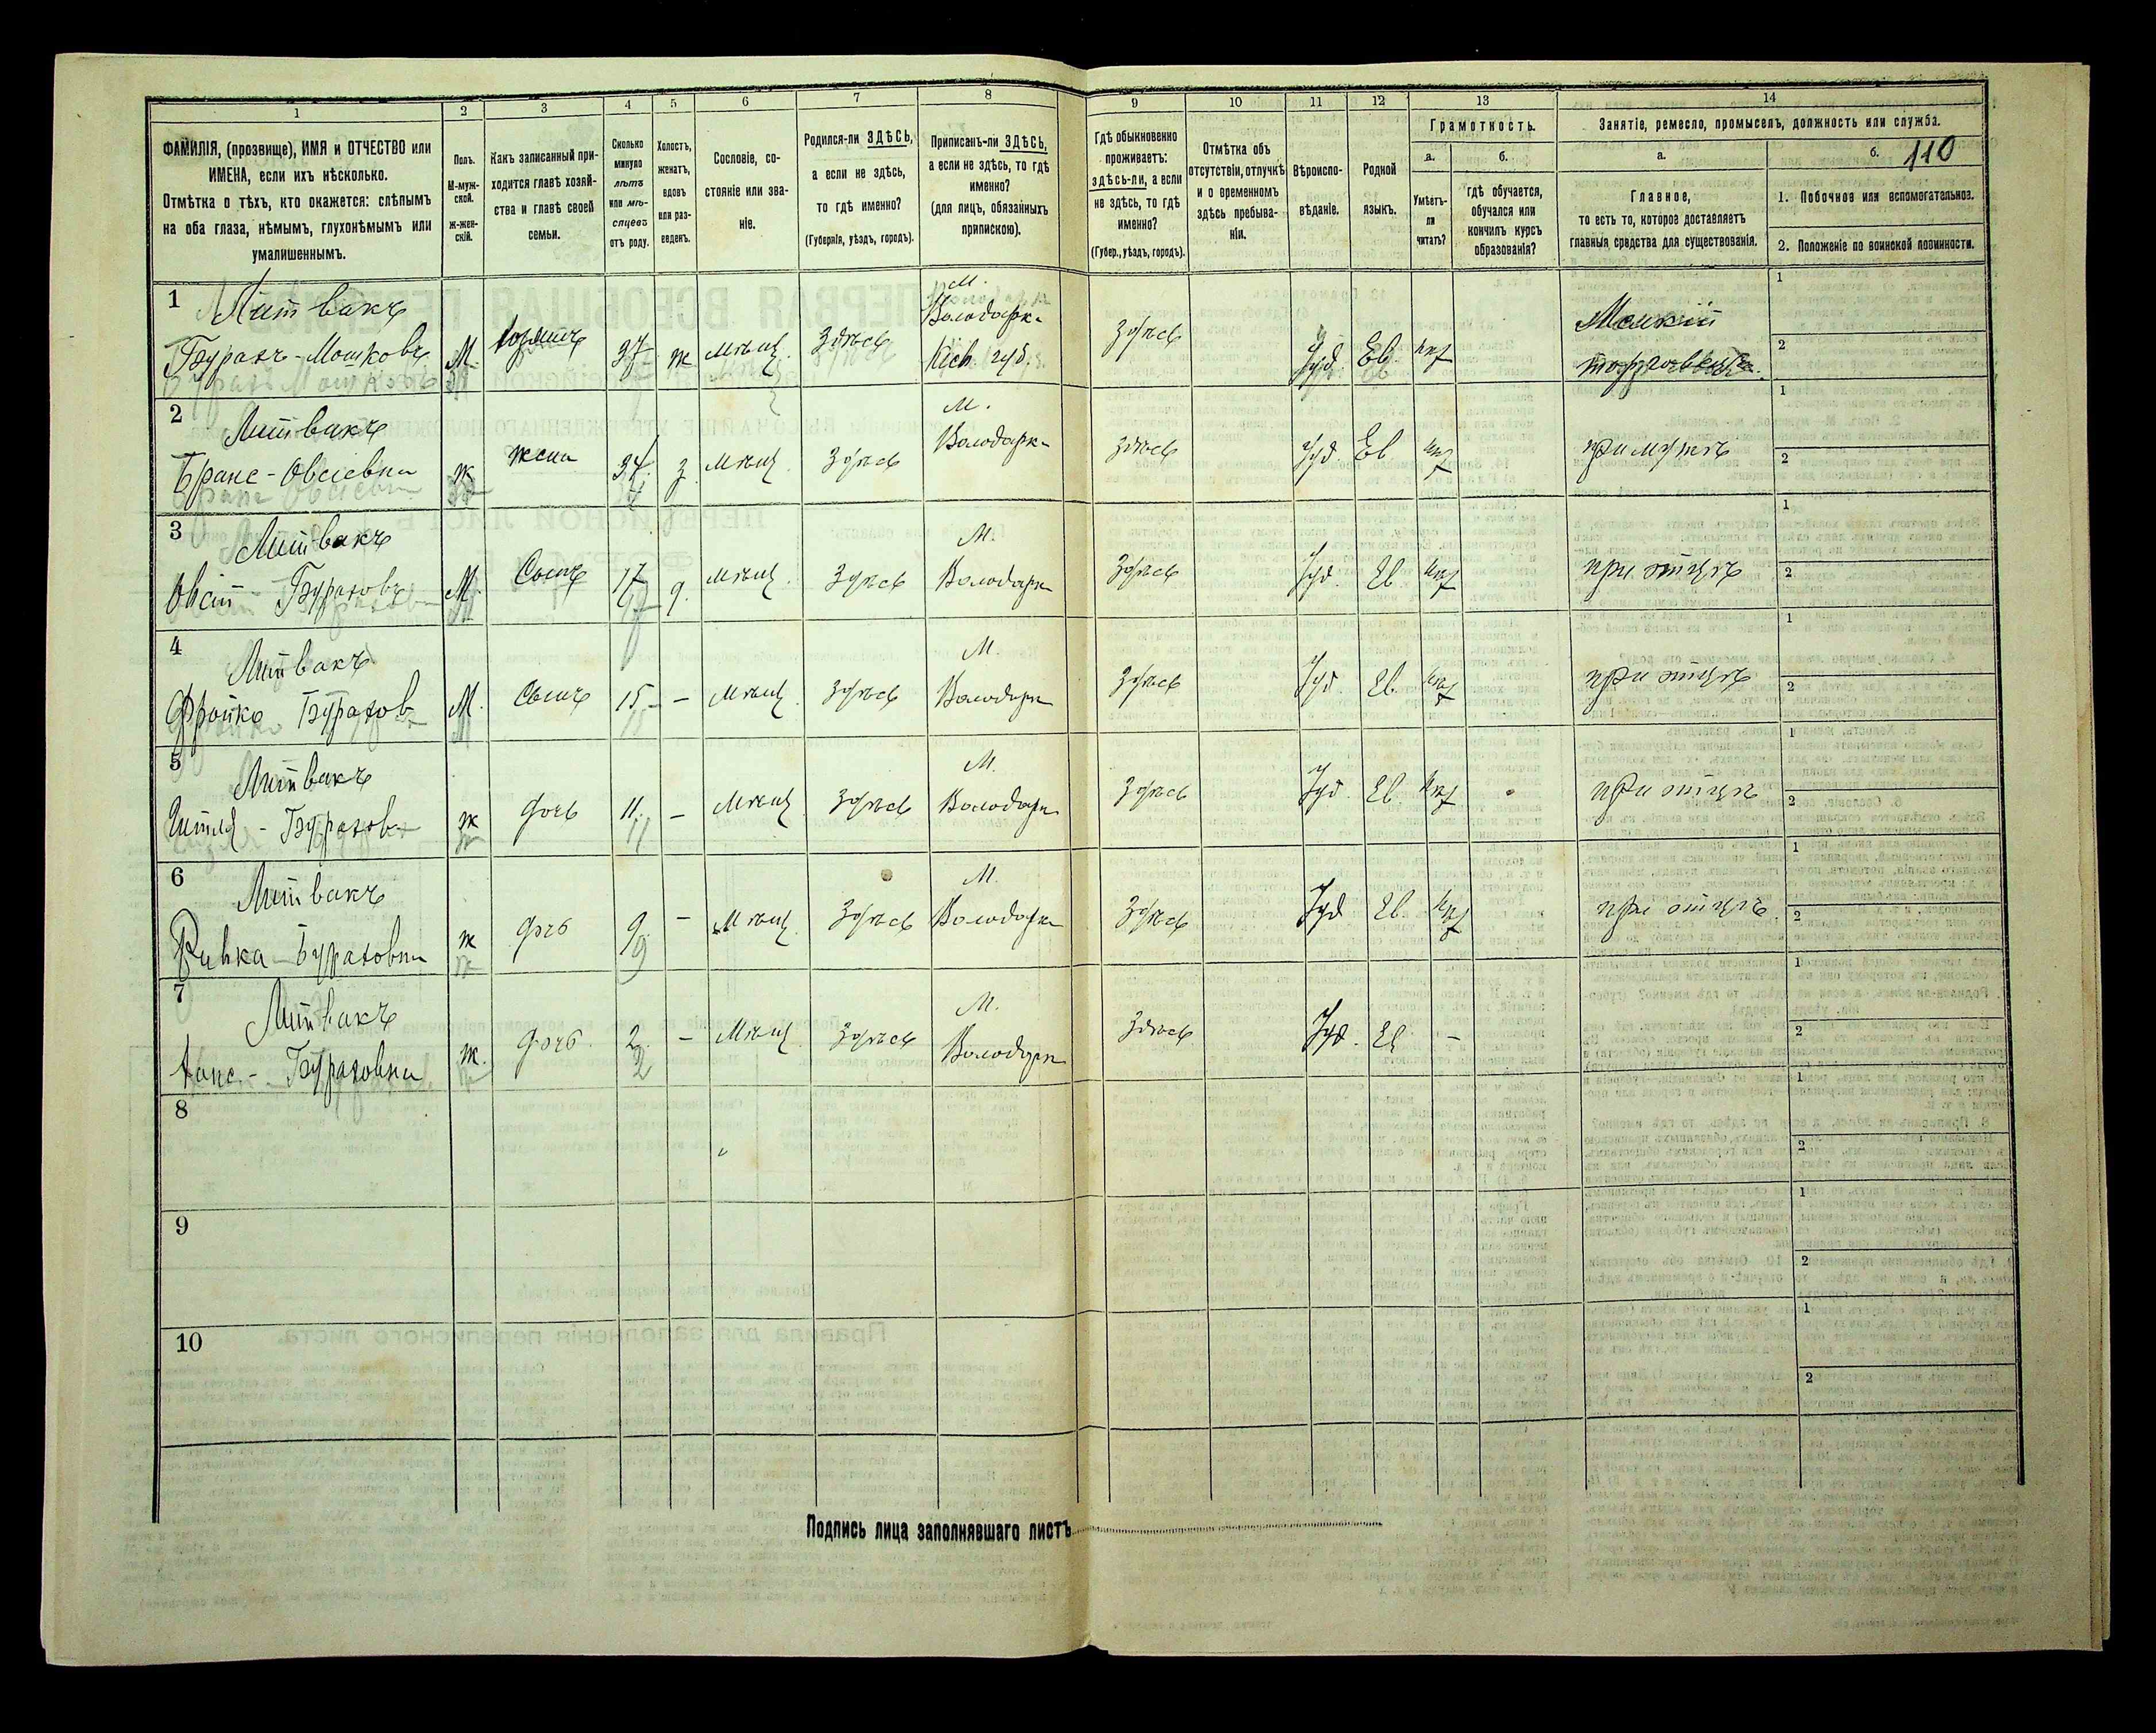 1 2 3 4 5 6 7 8 9 10 11 12 13 14
110
ФАМИЛІЯ, (прозвище), ИМЯ и ОТЧЕСТВО или
ИМЕНА, если ихъ нѣсколько.
Отмѣтка о тѣхъ, кто окажется: слѣпымъ
на оба глаза, нѣмымъ, глухонѣмымъ или
умалишеннымъ.
Полъ.
М-муж-
ской.
Ж-жен-
скій.
Какъ записанный при-
ходится главѣ хозяй-
ства и главѣ своей
семьи.
Сколько
минуло
лѣтъ
или мѣ-
сяцевъ
отъ роду.
Холостъ,
женатъ,
вдовъ
или раз-
веденъ.
Сословіе, со-
стояніе или зва-
ніе.
Родился-ли ЗДѢСЬ,
а если не здѣсь,
то гдѣ именно?
(Губернія, уѣздъ, городъ).
Приписанъ-ли ЗДѢСЬ,
а если не здѣсь, то гдѣ
именно?
(для лицъ, обязанныхъ
припискою).
Гдѣ обыкновенно
проживаетъ:
здѣсь-ли, а если
не здѣсь, то гдѣ
именно?
(Губер., уѣздъ, городъ).
Отмѣтка объ
отсутствіи, отлучкѣ
и о временномъ
здѣсь пребыва-
ніи.
Вѣроиспо-
вѣданіе.
Родной
языкъ.
Грамотность.
а.
Умѣетъ-
ли
читать?
б.
гдѣ обучается,
обучался или
кончилъ курсъ
образованія?
Занятіе, ремесло, промыселъ, должность или служба.
а.
Главное,
то есть то, которое доставляетъ
главныя средства для существованія.
б.
1. Побочное или вспомогательное.
2. Положеніе по воинской повинности.
1 Литвакъ М. Мелкій 1
Володарка
Бурахъ-Мошковъ М. хозяинъ 37 ж мѣщ. Здѣсь Кіев. губ. Здѣсь Іуд. Ев. 2
2 Литвакъ М. 1
Володарка
Бране-Овсіевна ж жена 34 з мѣщ. Здѣсь здѣсь Іуд. Ев. при мужѣ 2
3 Литвакъ М. 1
Овсій Бураховъ М. Сынъ 17 мѣщ. Здѣсь Володарка Здѣсь Іуд. Ев. при отцѣ 2
4 Литвакъ М. 1
Фройко Бурахов М. Сынъ 15 - мѣщ. Здѣсь Володарка Здѣсь Іуд. Ев. при отцѣ 2
5 Литвакъ М. 1
Бурахов ж дочь 11 - мѣщ. Здѣсь Володарка Здѣсь Іуд. Ев. при отцѣ 2
6 Литвакъ М. 1
Ривка Бураховна ж дочь 9 - мѣщ. Здѣсь Володарка Здѣсь Іуд Ев. при отцѣ 2
7 Литвакъ М. 1
Бураховна ж. дочь 2 - мѣщ. Здѣсь Володарка Здѣсь Іуд. Ев - 2
8 1
2
9 1
2
10 1
2
Подпись лица заполнявшаго листъ